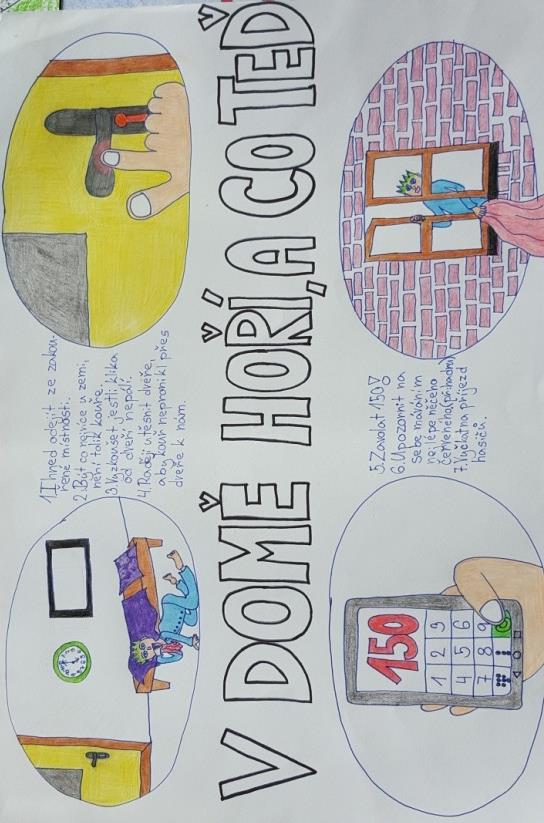 V DOMĚ HOŘÍ, A CO TEĎ
1. Ihned odejít ze zakou-
řené místnosti.
2. Být co nejníce u zemi,
není tolik kouře.
3. Vyzkoušet, jestli klika
od dveří nepálí.
4. Raději utěsnit dveře,
aby kouř nepronikl přes
dveře k nám.
5. Zavolat 150
6. Upozornit na
sebe máváním
nejlépe něčeho
červeného
7. Vyčkat na příjezd
hasičů.
150
1 2 3
4 5 6
7 8 9